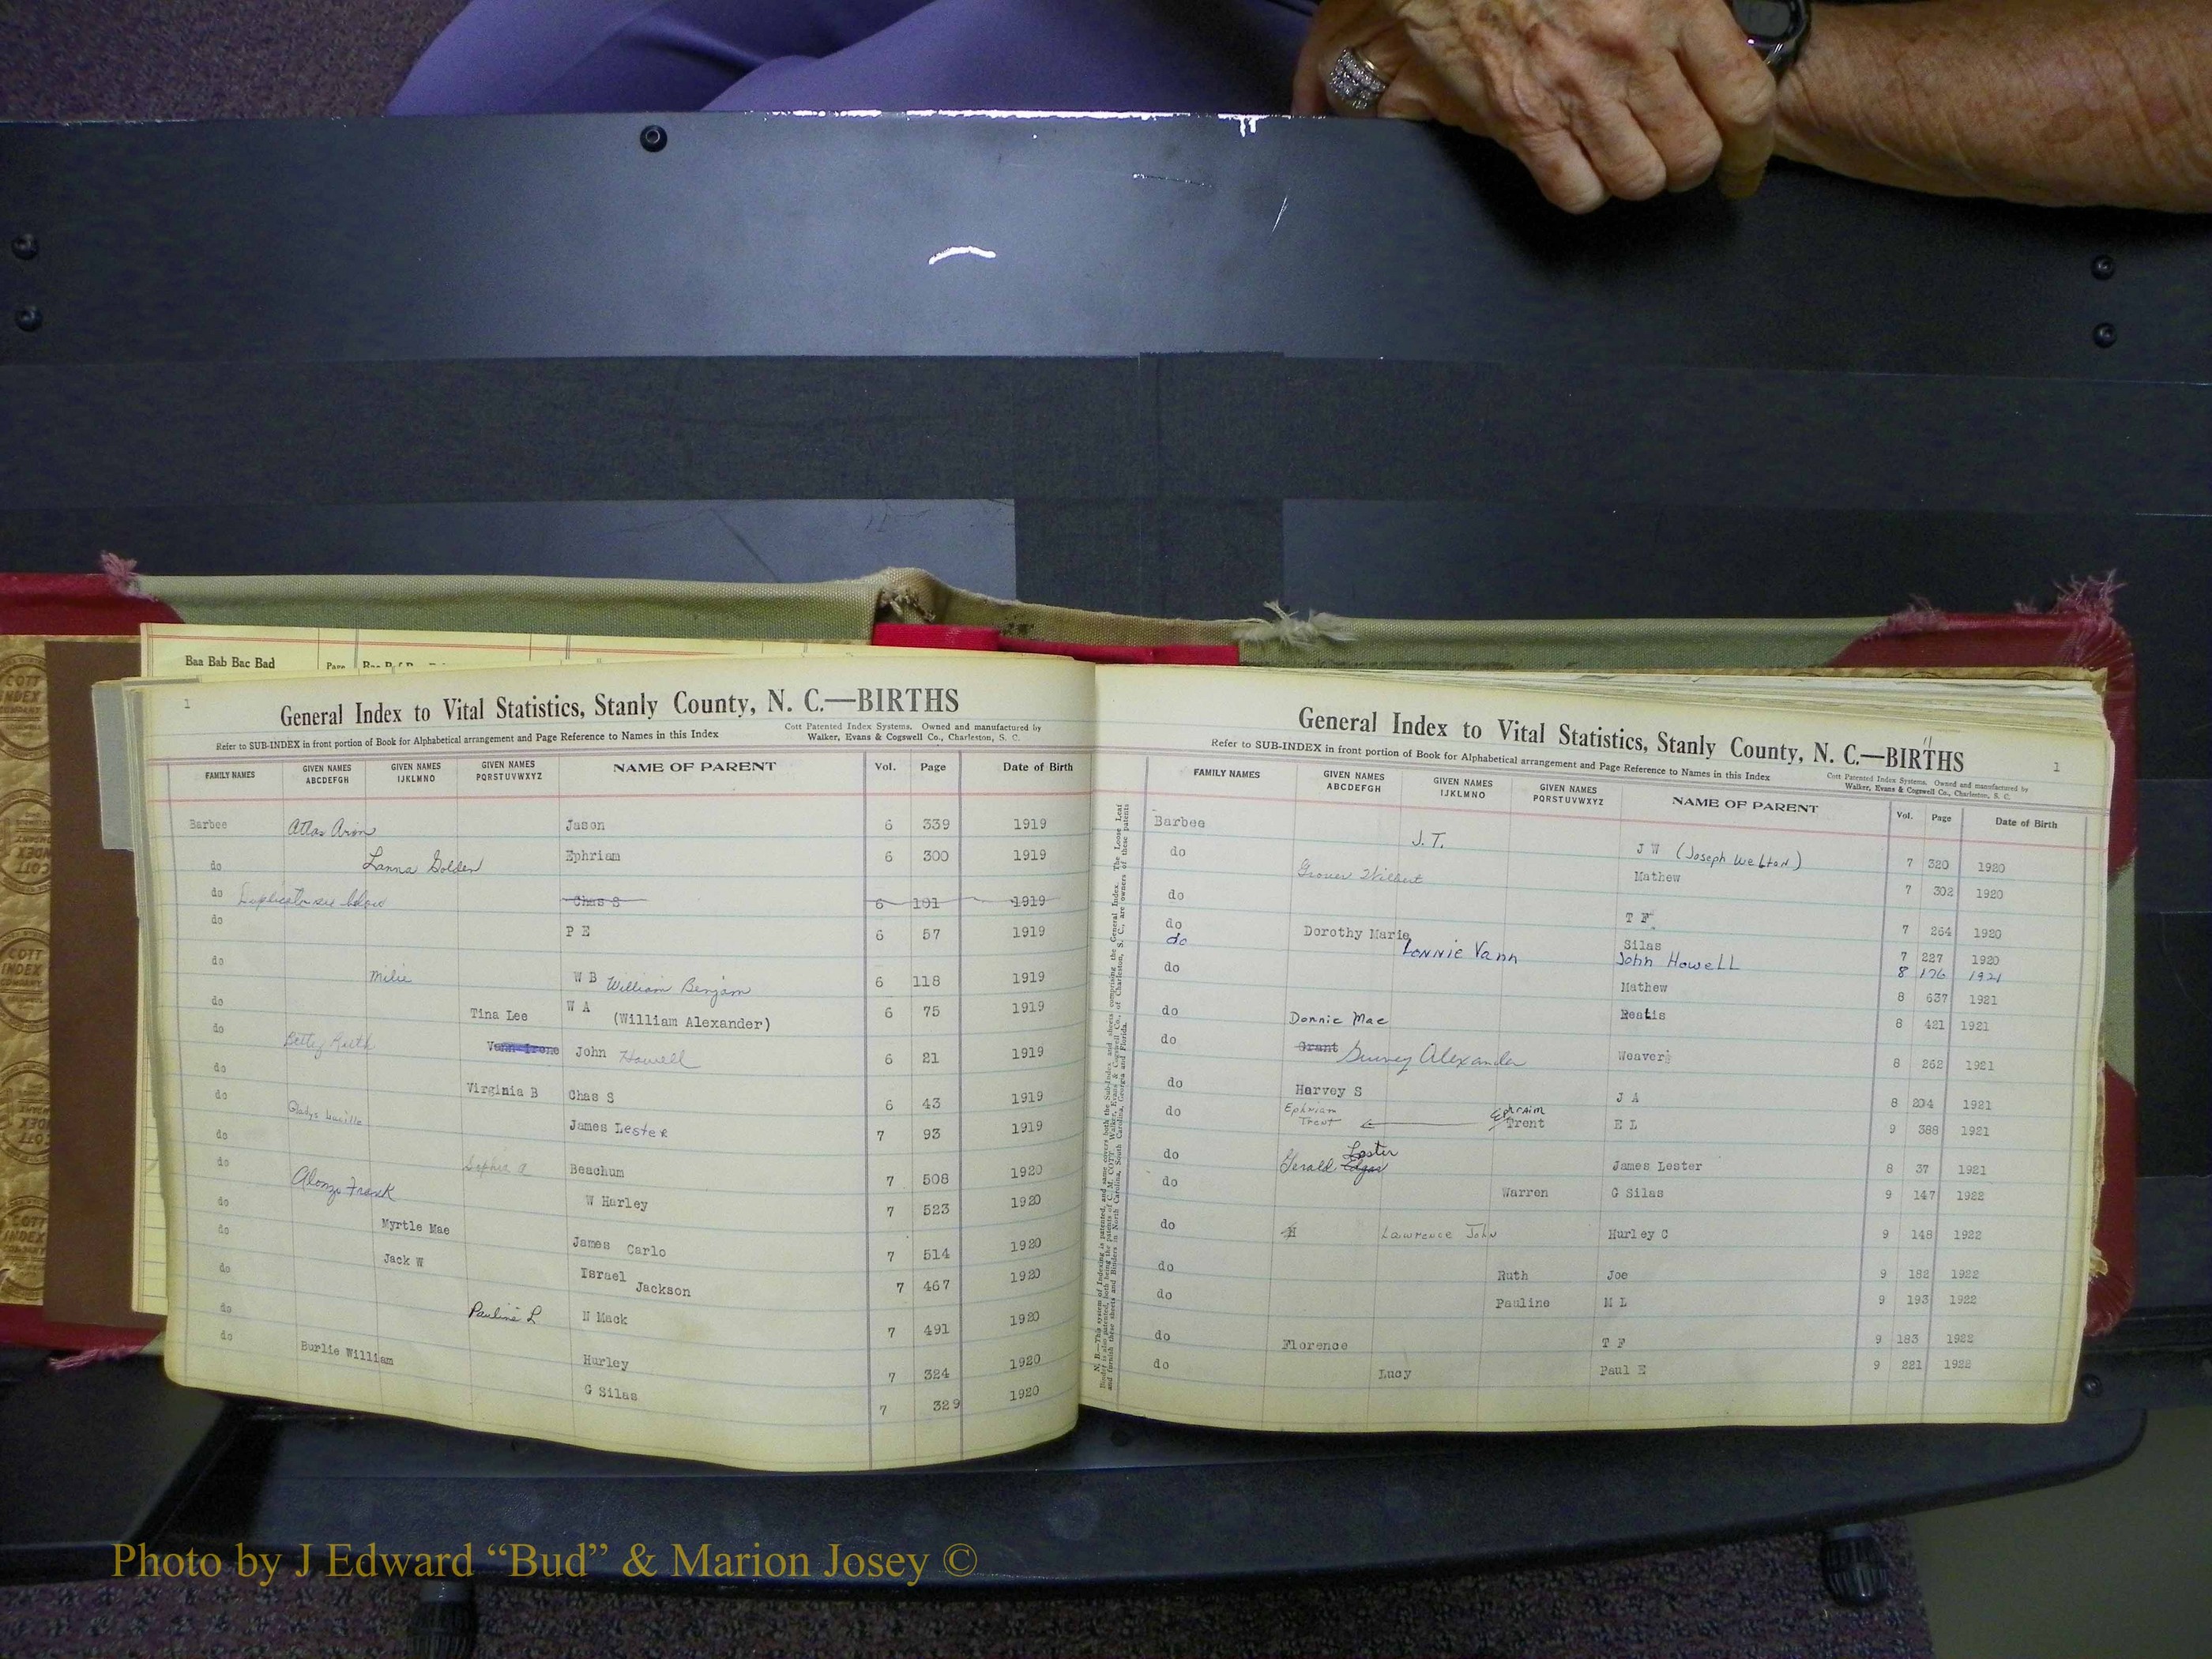 Baa Bab Bac Bad Page
1
General Index to Vital Statistics, Stanly County, N. C.—BIRTHS
Refer to SUB-INDEX in front portion of Book for Alphabetical arrangement and Page Reference to Names in this Index
Cott Patented Index Systems. Owned and manufactured by
Walker, Evans & Cogswell Co., Charleston, S. C.
FAMILY NAMES GIVEN NAMES ABCDEFGH GIVEN NAMES IJKLMNO GIVEN NAMES PQRSTUVWXYZ NAME OF PARENT Vol. Page Date of Birth
Barbee Atlas Arim Jason 6 339 1919
do Lanna Golden Ephriam 6 300 1919
do Duplicate see below Chas S 6 191 1919
do P E 6 57 1919
do Milie W B William Benjam 6 118 1919
do Tina Lee W A (William Alexander) 6 75 1919
do Betty Ruth Vann Irene John Howell 6 21 1919
do Virginia B Chas S 6 43 1919
do Gladys Lucille James Lester 7 93 1919
do Sophia A Beachum 7 508 1920
do Alonzo Frank W Harley 7 523 1920
do Myrtle Mae James Carlo 7 514 1920
do Jack W Israel Jackson 7 467 1920
do Pauline L N Mack 7 491 1920
do Hurley 7 324 1920
do Burlie William G Silas 7 329 1920
General Index to Vital Statistics, Stanly County, N. C.—BIRTHS
11
1
Refer to SUB-INDEX in front portion of Book for Alphabetical arrangement and Page Reference to Names in this Index
Cott Patented Index Systems. Owned and manufactured by
Walker, Evans & Cogswell Co., Charleston, S. C.
FAMILY NAMES GIVEN NAMES ABCDEFGH GIVEN NAMES IJKLMNO GIVEN NAMES PQRSTUVWXYZ NAME OF PARENT Vol. Page Date of Birth
Barbee J.T. J W (Joseph Welton) 7 320 1920
do Grover Wilbert Mathew 7 302 1920
do T F 7 264 1920
do Dorothy Marie Silas 7 227 1920
do Lonnie Vann John Howell 8 176 1921
do Mathew 8 637 1921
do Donnie Mae Restis 8 421 1921
do Grant Gurney Alexander Weaver 8 262 1921
do Harvey S J A 8 204 1921
do Ephriam Trent Ephraim Trent E L 9 388 1921
do Gerald Edgar Lester James Lester 8 37 1921
do Warren G Silas 9 147 1922
do H Lawrence John Hurley C 9 148 1922
do Ruth Joe 9 182 1922
do Pauline M L 9 193 1922
do Florence T F 9 183 1922
do Lucy Paul E 9 221 1922
COTT INDEX COMPANY
Photo by J Edward “Bud” & Marion Josey ©